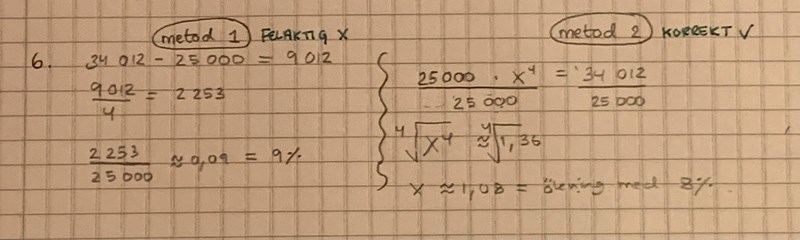 metod 1 FELAKTIG X
6. 34 012 - 25 000 = 9 012
9 012 / 4 = 2 253
2 253 / 25 000 ≈ 0,09 = 9%
metod 2 KORREKT √
25 000 · X⁴ / 25 000 = 34 012 / 25 000
⁴√X⁴ ≈ ⁴√1,36
X ≈ 1,08 = ökning med 8%